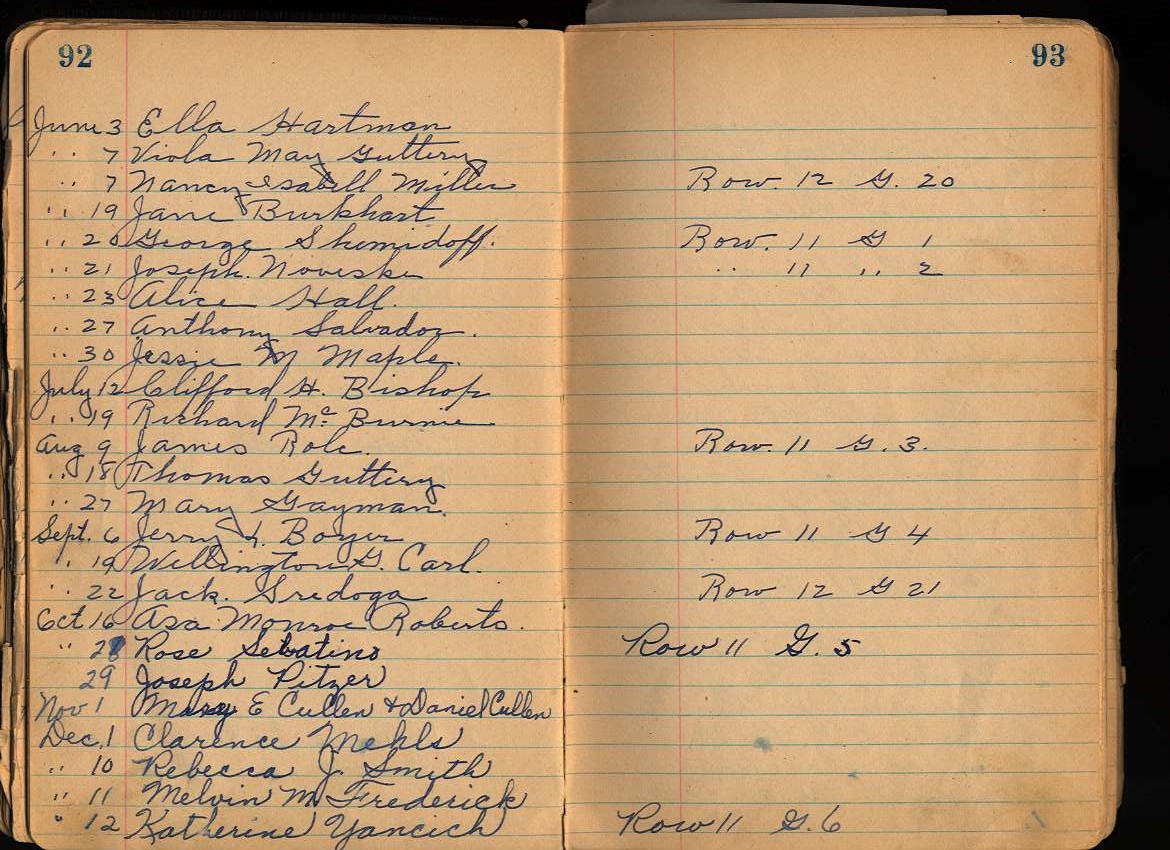 92 93
June 3 Ella Hartman
" 7 Viola May Guttery
" 7 Nancy Isabell Miller Row. 12 G. 20
" 19 Jane Burkhart
" 20 George Shemidoff. Row. 11 G 1
" 21 Joseph. Noveske " 11 " 2
" 23 Alice Hall.
" 27 Anthony Salvador.
" 30 Jessie M Maple.
July 12 Clifford H. Bishop
" 19 Richard Mc Burnie
Aug 9 James Role. Row. 11 G. 3.
" 18 Thomas Guttery
" 27 Mary Gayman.
Sept. 6 Jerry L. Boyer Row 11 G 4
" 19 Wellington G. Carl.
" 22 Jack. Sredoga Row 12 G 21
Oct 16 Asa Monroe Roberts.
" 28 Rose Sebatino Row 11 G. 5
29 Joseph Pitzer
Nov 1 Mary E Cullen & Daniel Cullen
Dec. 1 Clarence Mehls
" 10 Rebecca J. Smith
" 11 Melvin M Frederick
" 12 Katherine Yancich Row 11 G. 6